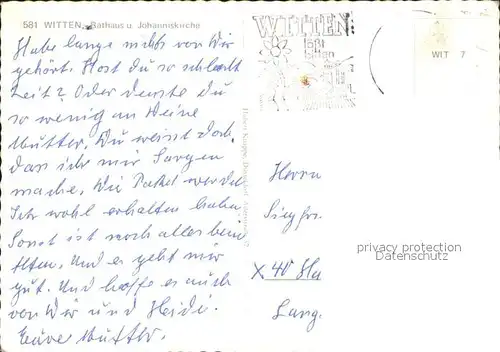 581 WITTEN, Rathaus u. Johanniskirche
Habe lange nichts von Dir
gehört. Hast du so schlecht
Zeit? Oder denkste du
so wenig an Deine
Mutter. Du weisst doch,
das ich mir Sorgen
mache. Die Paket werdet
Ihr wohl erhalten haben
Sonst ist noch alles beim
Alten. Und es geht mir
gut. Und hoffe es auch
von Dir und Heidi.
Eure Mutter.
WITTEN
WIT 7
Herrn
Siegfr.
privacy protection
Datenschutz
X 40 Ha
Lang.